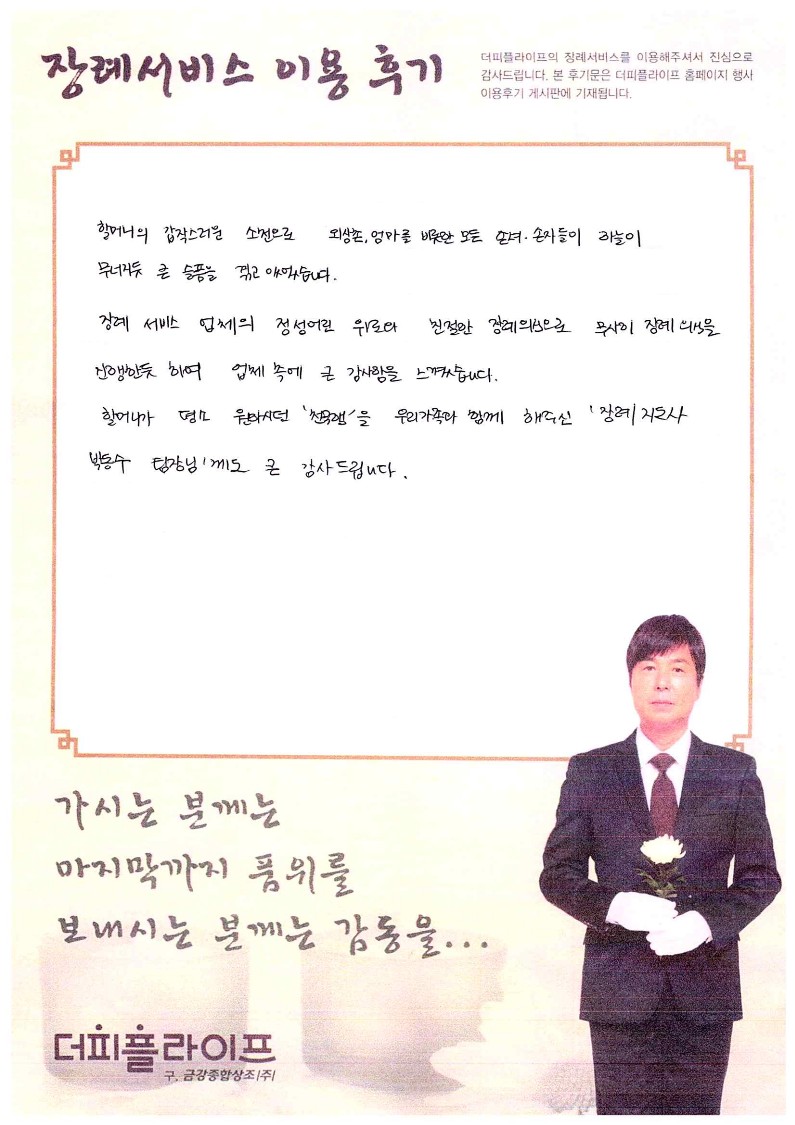 장례서비스 이용 후기
더피플라이프의 장례서비스를 이용해주셔서 진심으로
감사드립니다. 본 후기문은 더피플라이프 홈페이지 행사
이용후기 게시판에 기재됩니다.
할머니의 갑작스러운 소천으로 외삼촌, 엄마를 비롯한 모든 손녀·손자들이 하늘이
무너지듯 큰 슬픔을 겪고 있었습니다.
장례 서비스 업체의 정성어린 위로와 친절한 장례의식으로 무사히 장례 의식을
진행한듯 하여 업체 측에 큰 감사함을 느꼈습니다.
할머니가 평소 원하시던 '찬송' 을 우리가족과 함께 해주신 '장례지도사
박동수 팀장님' 께도 큰 감사드립니다.
가시는 분께는
마지막까지 품위를
보내시는 분께는 감동을...
더피플라이프
구. 금강종합상조(주)